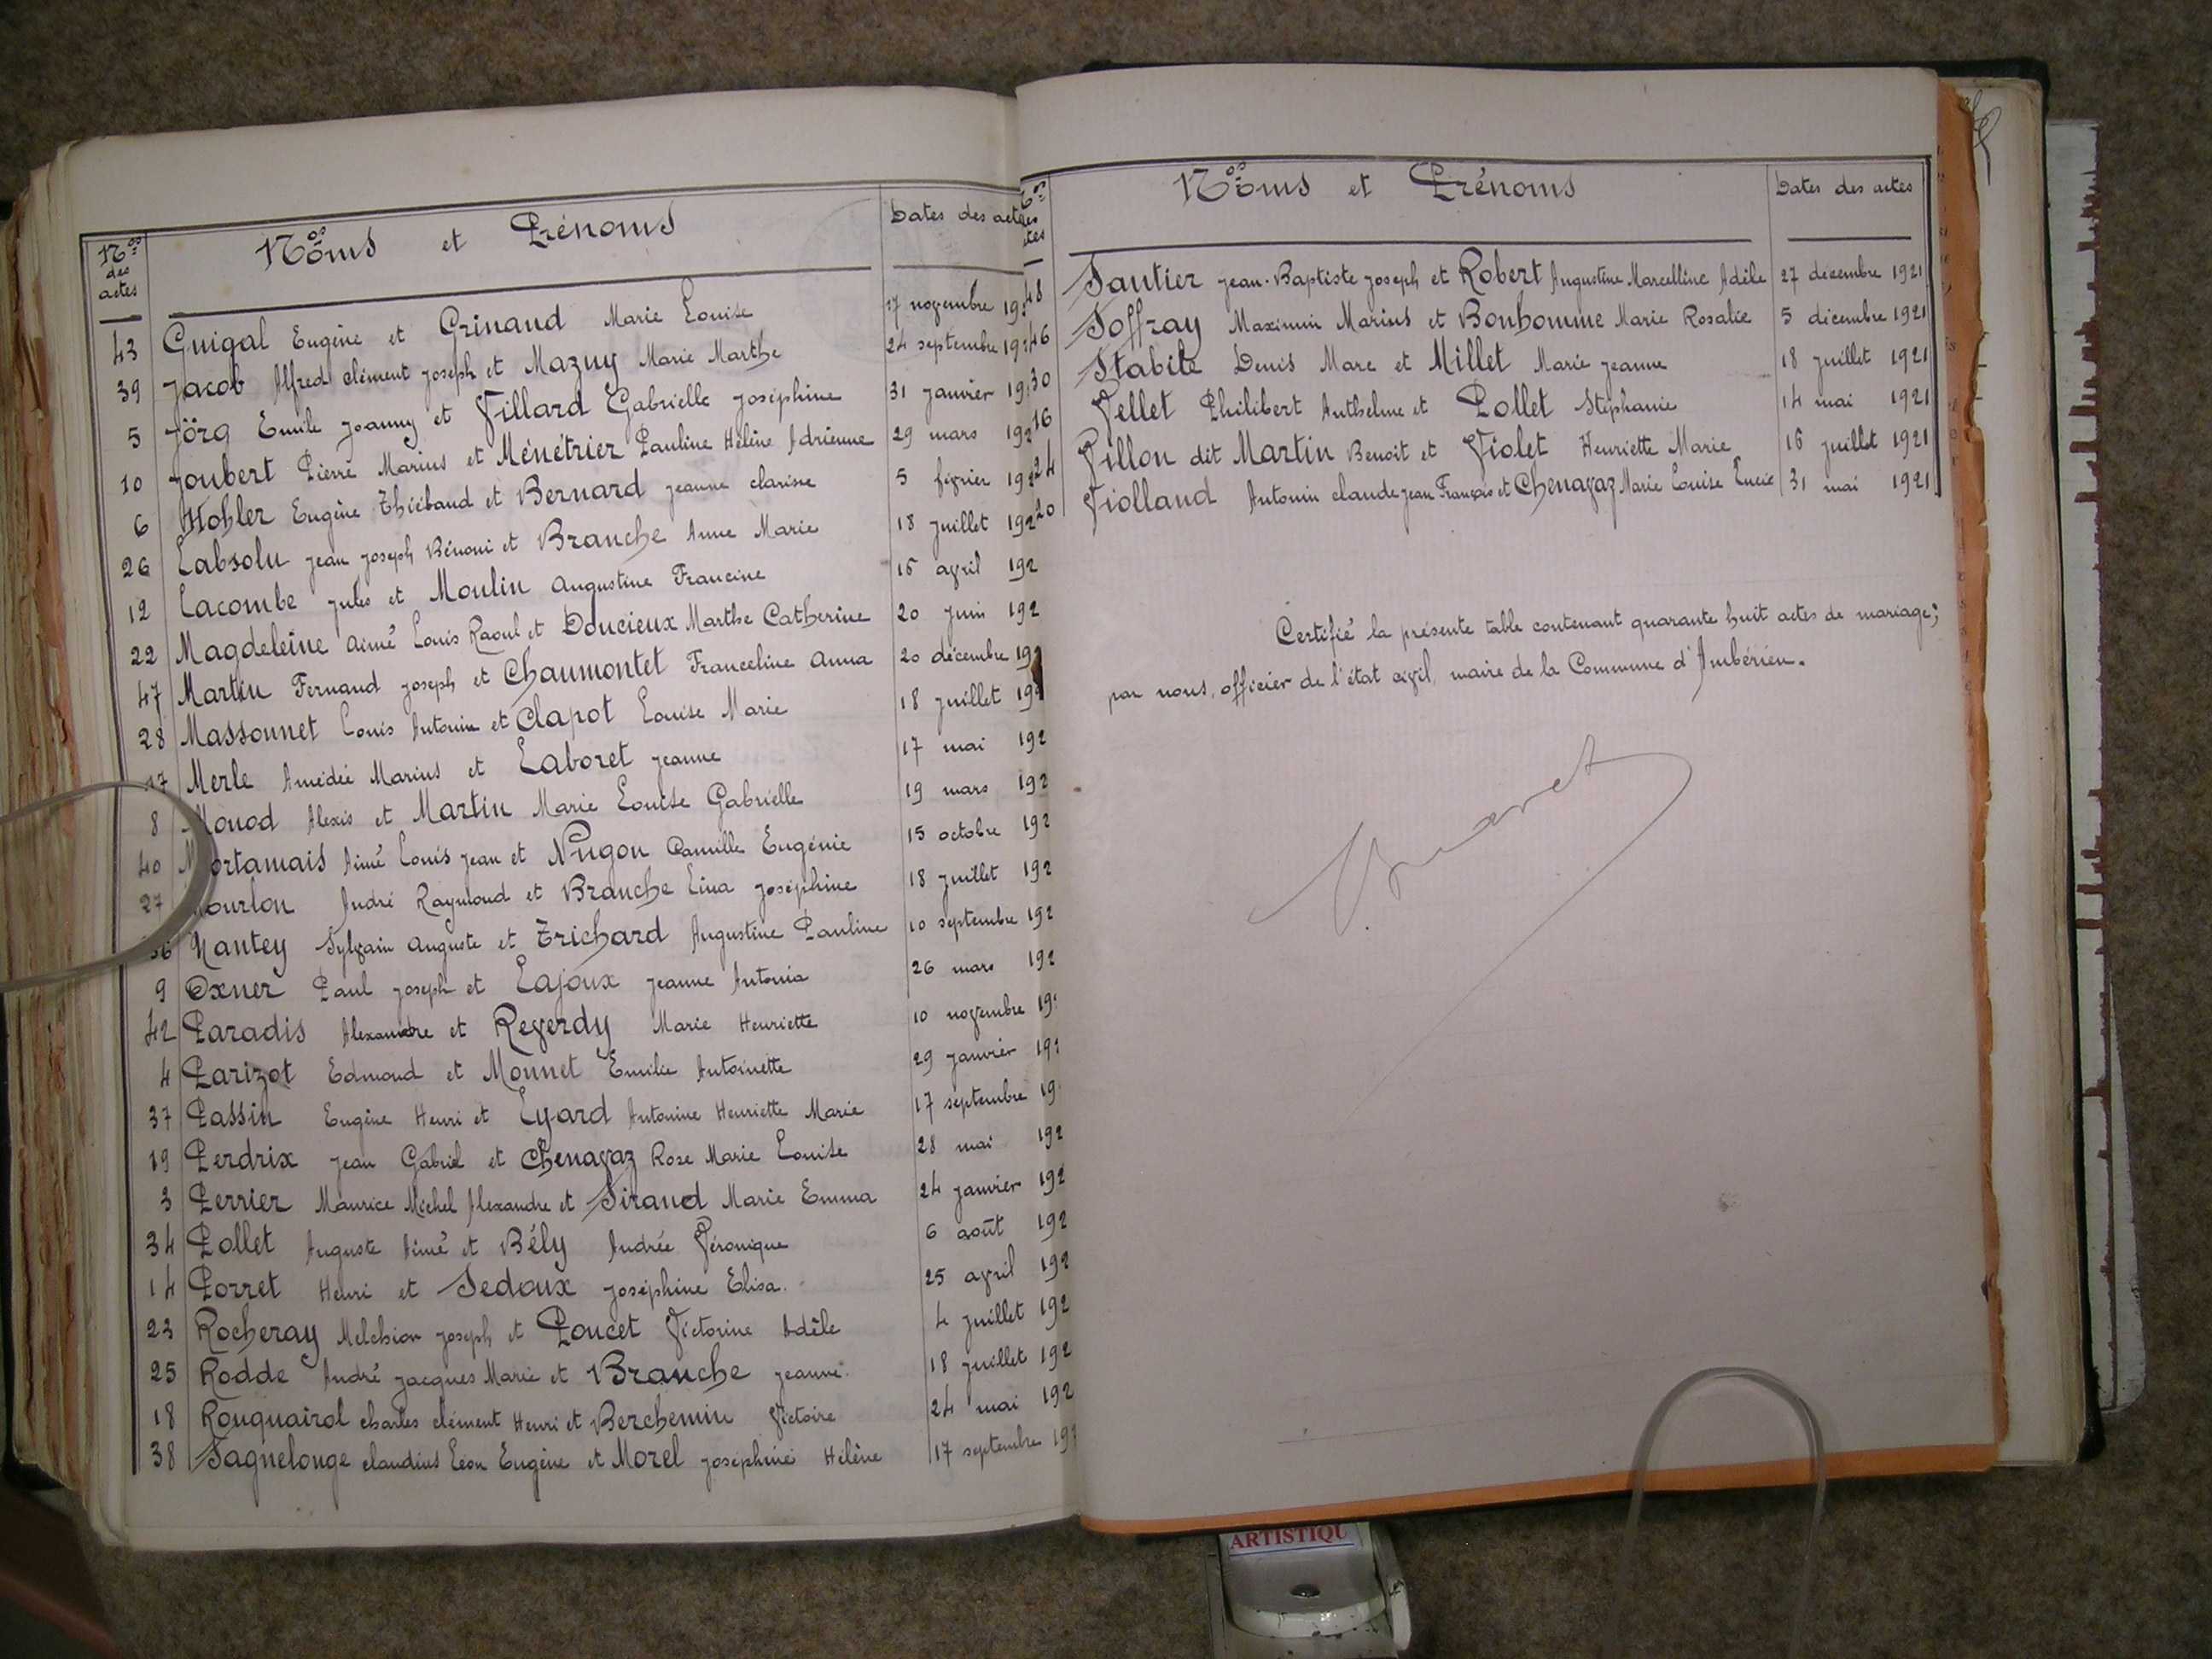 Nos des actes
Noms et Prénoms
Dates des actes
43 Guigal Eugène et Grinand Marie Louise 17 novembre 19
39 Jacob Alfred clément Joseph et Mazuy Marie Marthe 24 septembre 19
5 Jörg Emile Joanny et Villard Gabrielle Joséphine 31 janvier 19
10 Joubert Pierre Marius et Ménétrier Pauline Hélène Adrienne 29 mars 192
6 Kohler Eugène Thiébaud et Bernard Jeanne clarisse 5 février 192
26 Labsolu Jean Joseph Bénoni et Branche Anne Marie 18 juillet 192
12 Lacombe Jules et Moulin Augustine Francine 16 avril 192
22 Magdeleine Aimé Louis Raoul et Doucieux Marthe Catherine 20 juin 192
47 Martin Fernand Joseph et Chaumontet Franceline Anna 20 décembre 192
28 Massonnet Louis Antonin et Clapot Louise Marie 18 juillet 192
17 Merle Amédée Marius et Laboret Jeanne 17 mai 192
8 Monod Alexis et Martin Marie Louise Gabrielle 19 mars 192
40 Mortamais Aimé Louis Jean et Nugon Camille Eugénie 15 octobre 192
27 Mourlon André Raymond et Branche Lina Joséphine 18 juillet 192
36 Nantey Sylvain Auguste et Trichard Augustine Pauline 10 septembre 192
9 Oxner Paul Joseph et Lajoux Jeanne Antonia 26 mars 192
42 Paradis Alexandre et Reverdy Marie Henriette 10 novembre 19
4 Parizot Edmond et Monnet Emilie Antoinette 29 janvier 192
37 Passin Eugène Henri et Eyard Antonine Henriette Marie 17 septembre 19
19 Perdrix Jean Gabriel et Chenavaz Rose Marie Louise 28 mai 192
3 Perrier Maurice Michel Alexandre et Siraud Marie Emma 24 janvier 192
34 Pollet Auguste Aimé et Bély Andrée Véronique 6 août 192
14 Porret Henri et Sedoux Joséphine Elisa. 25 avril 192
23 Rocheray Melchior Joseph et Poncet Victorine Adèle 4 juillet 192
25 Rodde André Jacques Marie et Branche Jeanne. 18 juillet 192
18 Rouquairol charles clément Henri et Berchemin Victoire 24 mai 192
38 Sagnelonge claudius Léon Eugène et Morel Joséphine Hélène 17 septembre 192
Noms et Prénoms
Dates des actes
48 Sautier Jean-Baptiste Joseph et Robert Augustine Marcelline Adèle 27 décembre 1921
46 Soffray Maximin Marius et Bonhomme Marie Rosalie 5 décembre 1921
30 Stabile Denis Marc et Millet Marie Jeanne 18 juillet 1921
16 Vellet Philibert Anthelme et Pollet Stéphanie 14 mai 1921
24 Villon dit Martin Benoit et Violet Henriette Marie 16 juillet 1921
20 Violland Antonin claude Jean François et Chenavaz Marie Louise Lucie 31 mai 1921
Certifié la présente table contenant quarante huit actes de mariage;
par nous, officier de l'état civil, maire de la Commune d'Ambérieu.
ARTISTIQU